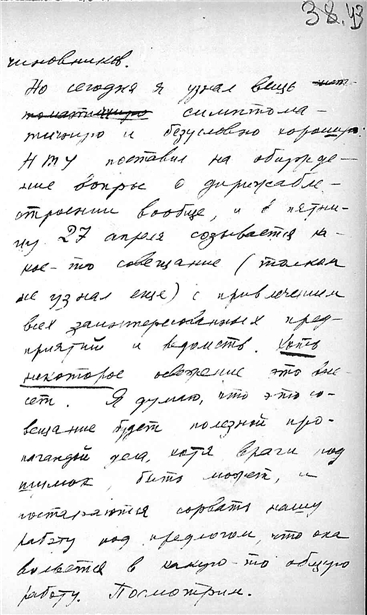 38. 43
чиновников.
Но сегодня я узнал вещь
симптома-
тичную и безусловно хорошую.
НТУ поставил на обсужде-
ние вопрос о дирижабле-
строении вообще, и в пятни-
цу 27 апреля созывается ка-
кое-то совещание (толком
не узнал еще) с привлечением
всех заинтересованных пред-
приятий и ведомств. Хоть
некоторое освежение это вне-
сет. Я думаю, что это со-
вещание будет полезной про-
пагандой дела, хотя враги под
шумок, быть может, и
постараются сорвать нашу
работу под предлогом, что она
вольется в какую-то общую
работу. Посмотрим.